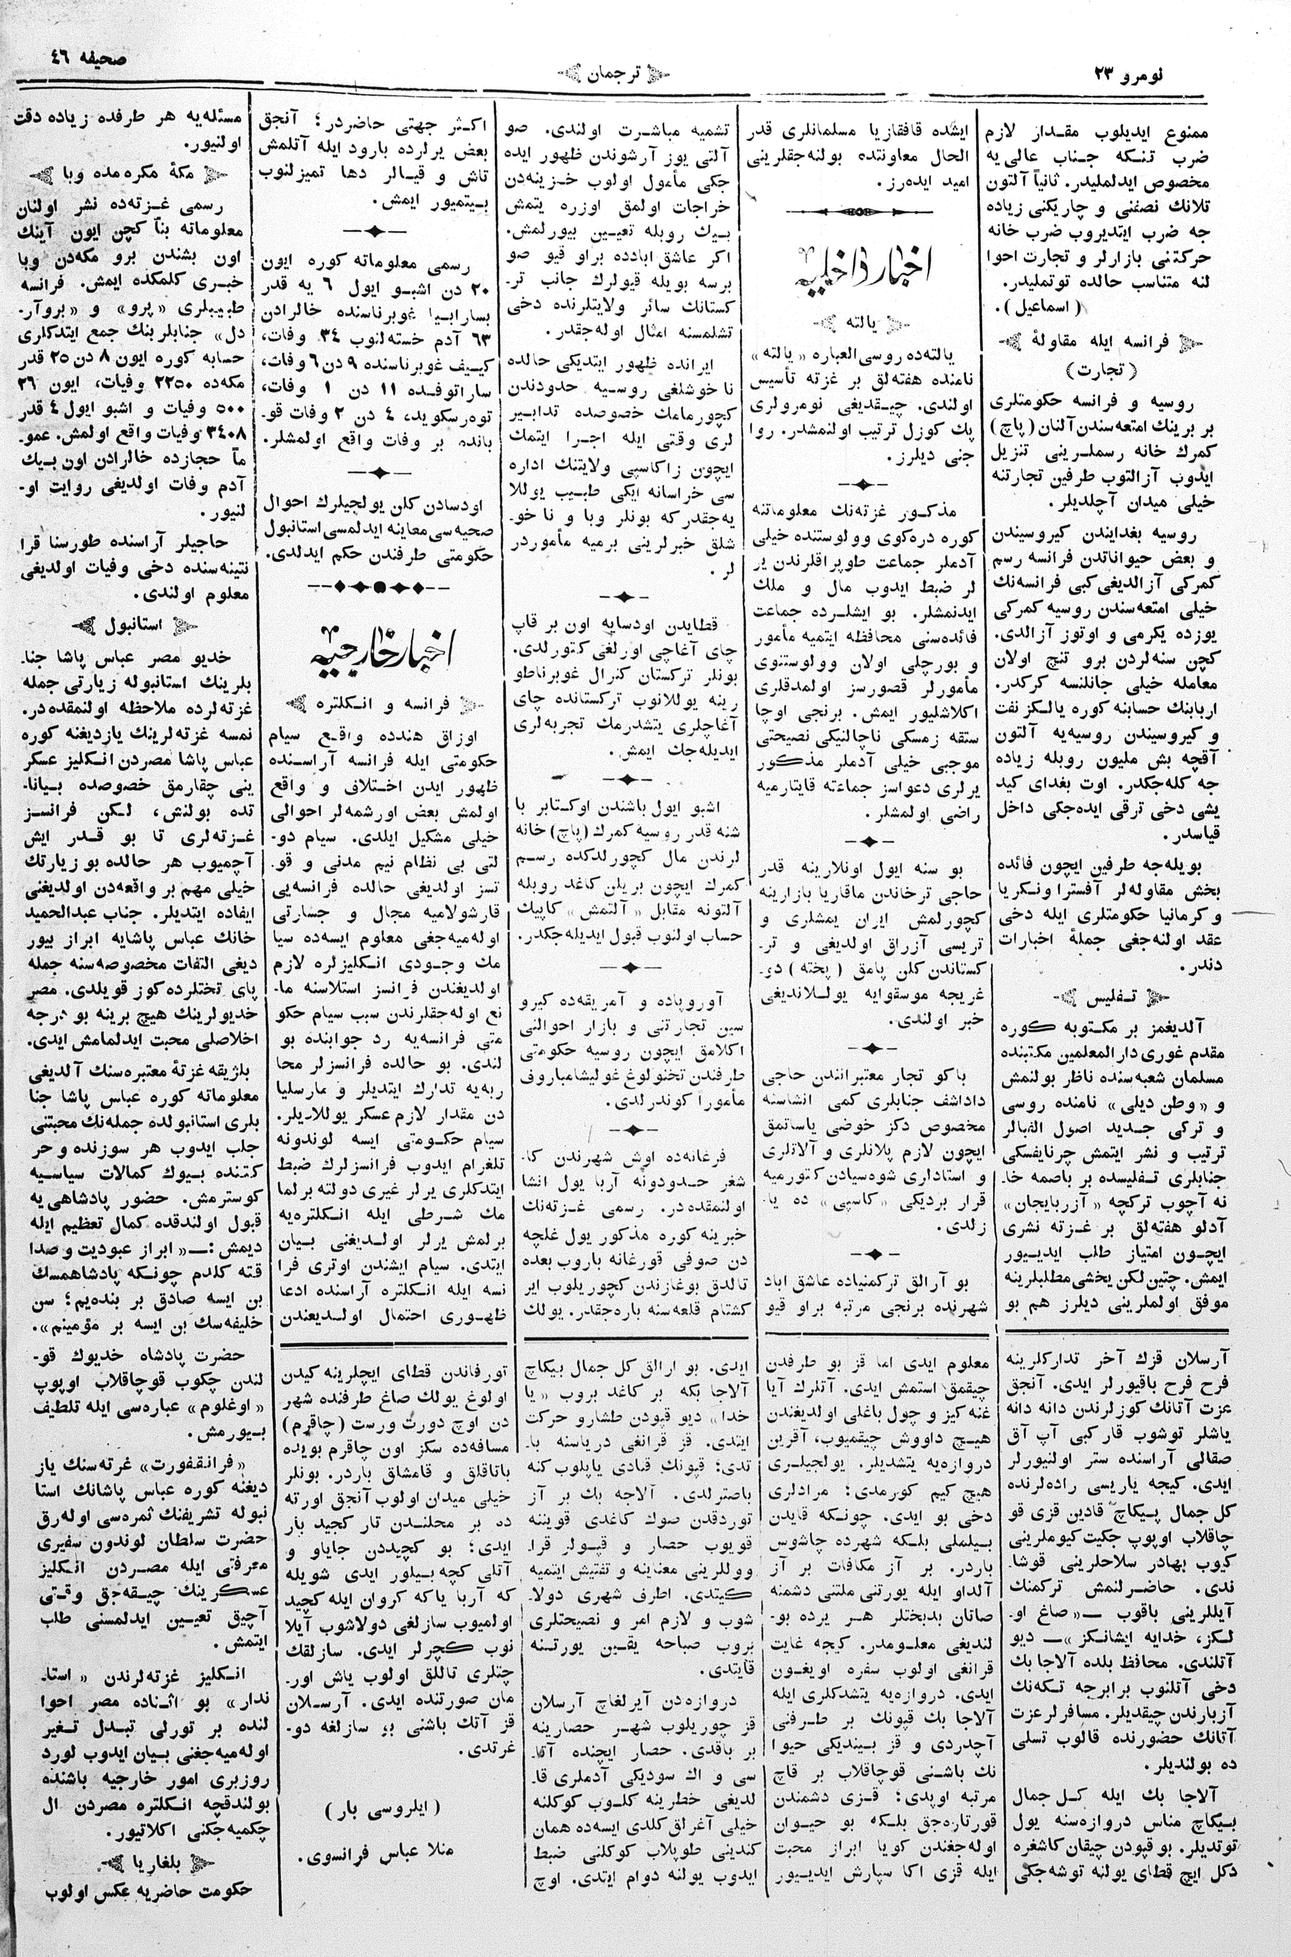 نومرو ٢٣
ترجمان
صحیفه ٤٦
ممنوع ایدیلوب مقداز لازم
ضرب تنكه جناب عالی یه
مخصوص ایدلملیدر. ثانیاً آلتون
تلانك نصفنی و چاریكنی زیاده
جه ضرب ایتدیروب ضرب خانه
حركتنی بازارلر و تجارت احوا
لنه متناسب حالده توتملیدر.
(اسماعیل).
فرانسه ایله مقاولهٔ
(تجارت)
روسیه و فرانسه حكومتلری
بر برینك امتعه سندن آلنان (پاچ)
كمرك خانه رسملرینی تنزیل
ایدوب آزالتوب طرفین تجارتنه
خیلی میدان آچلدیلر.
روسیه بغداینندن كیروسیندن
و بعض حیواناتدن فرانسه رسم
كمركی آزالدیغی كبی فرانسه نك
خیلی امتعه سندن روسیه كمركی
یوزده یكرمی و اوتوز آزالدی.
كچن سنه لردن برو تنچ اولان
معامله خیلی جانلنسه كركدر.
اربابنك حسابنه كوره یالكز نفت
و كیروسیندن روسیه یه آلتون
آقچه بش ملیون روبله زیاده
جه كله جكدر. اوت بغدای كید
یشی دخی ترقی ایده جكی داخل
قیاسدر.
بویله جه طرفین ایچون فائده
بخش مقاوله لر آفستراونكریا
و كرمانیا حكومتلری ایله دخی
عقد اولنه جغی جملهٔ اخبارات
دندر.
تفلیس
آلدیغمز بر مكتوبه كوره
مقدم غوری دارالمعلمین مكتبنده
مسلمان شعبه سنده ناظر بولنمش
و «وطن دیلی» نامنده روسی
و تركی جدید اصول الفبالر
ترتیب و نشر ایتمش چرنایفسكی
جنابلری تفلیسده بر باصمه خا-
نه آچوب تركچه «آزربایجان»
آدلو هفته لق بر غزته نشری
ایچون امتیاز طلب ایدییور
ایمش. چتین لكن یخشی مطلبلرینه
موفق اولملرینی دیلرز هم بو
ایشده قافقازیا مسلمانلری قدر
الحال معاونتده بولنه جقلرینی
امید ایده رز.
اخبار داخلیه
یالته
یالته ده روسی العباره «یالته»
نامنده هفته لق بر غزته تأسیس
اولندی. چیقدیغی نومرولری
پك كوزل ترتیب اولنمشدر. روا
جنی دیلرز.
مذكور غزته نك معلوماتنه
كوره دره كوی وولوستنده خیلی
آدملر جماعت طوپراقلرندن یر
لر ضبط ایدوب مال و ملك
ایدنمشلر. بو ایشلرده جماعت
فائده سنی محافظه ایتمیه مأمور
و بورچلی اولان وولوستنوی
مأمورلر قصورسز اولمدقلری
اكلاشلیور ایمش. برنجی اوچا
ستقه زمسكی ناچالنیكی نصیحتی
موجبی خیلی آدملر مذكور
یرلری دعواسز جماعته قایتارمیه
راضی اولمشلر.
بو سنه ایول اونلارینه قدر
حاجی ترخاندن ماقاریا بازارینه
كچورلمش ایران یمشلری و
تریسی آزراق اولدیغی و تر-
كستاندن كلن پامق (پخته) دو-
غریجه موسقوایه یوللاندیغی
خبر اولندی.
باكو تجار معتبرانندن حاجی
داداشف جنابلری كمی انشاسنه
مخصوص دكز خوضی یاساتمق
ایچون لازم پلانلری و آلاتلری
و استاداری شوه سیادن كتورمیه
قرار بردیكی «كاسپی» ده یا-
زلدی.
بو آرالق تركمنیاده عاشق اباد
شهرنده برنجی مرتبه براو قیو
تشمیه مباشرت اولندی. صو
آلتی یوز آرشوندن ظهور ایده
جكی مأمول اولوب خزینه دن
خراجات اولمق اوزره یتمش
بیك روبله تعیین بیورلمش.
اكر عاشق آبادده براو قیو صو
برسه بویله قیولرك جانب تر-
كستانك سائر ولایتلرنده دخی
تشلمسنه امثال اوله جقدر.
ایرانده ظهور ایتدیكی حالده
ناخوشلغی روسیه حدودندن
كچورمامك خصوصده تدابیر
لری وقتی ایله اجرا ایتمك
ایچون زاكاسپی ولایتنك اداره
سی خراسانه ایكی طبیب یوللا
یه جقدر كه بونلر وبا و ناخو-
شلق خبرلرینی برمیه مأموردر
لر.
قطایدن اودسایه اون بر قاپ
چای آغاچی اورلغی كتورلدی.
بونلر تركستان كنرال غوبرناطو
رینه یوللانوب تركستانده چای
آغاچلری یتشدرمك تجربه لری
ایدیله جك ایمش.
اشبو ایول باشندن اوكتابر با
شنه قدر روسیه كمرك (پاچ) خانه
لرندن مال كچورلدكده رسم
كمرك ایچون بریلن كاغد روبله
آلتونه مقابل «آلتمش» كاپیك
حساب اولنوب قبول ایدیله جكدر.
آوروپاده و آمریقه ده كیرو
سین تجارتی و بازار احوالنی
اكلامق ایچون روسیه حكومتی
طرفندن تخنولوغ غولیشامباروف
مأموراً كوندرلدی.
فرغانه ده اوش شهرندن كا-
شغر حدودونه آربا یول انشا
اولنمقده در. رسمی غزته نك
خبرینه كوره مذكور یول غلچه
دن صوفی قورغانه باروب بعده
تالدق بوغازندن كچوریلوب ایر
كشتام قلعه سنه باره جقدر. یولك
اكثر جهتی حاضردر؛ آنجق
بعض یرلرده بارود ایله آتلمش
تاش و قیالر دها تمیزلنوب
بیتمیور ایمش.
رسمی معلوماته كوره ایون
٢٠ دن اشبو ایول ٦ یه قدر
بسارابیا غوبرناسنده خالرادن
٦٣ آدم خسته لنوب ٣٤ وفات،
كییف غوبرناسنده ٩ دن ٦ وفات،
ساراتوفده ١١ دن ١ وفات،
توه رسكویده، ٤ دن ٢ وفات قو-
بانده بر وفات واقع اولمشلر.
اودسادن كلن یولجیلرك احوال
صحیه سی معاینه ایدلمسی استانبول
حكومتی طرفندن حكم ایدلدی.
اخبار خارجیه
فرانسه و انكلتره
اوزاق هندده واقع سیام
حكومتی ایله فرانسه آراسنده
ظهور ایدن اختلاف و واقع
اولمش بعض اورشمه لر احوالی
خیلی مشكیل ایلدی. سیام دو-
لتی بی نظام نیم مدنی و قو-
تسز اولدیغی حالده فرانسه یی
قارشولامیه مجال و جسارتی
اوله میه جغی معلوم ایسه ده سیا
مك وجودی انكلیزلره لازم
اولدیغندن فرانسز استلاسنه ما-
نع اوله جقلرندن سبب سیام حكو
متی فرانسه یه رد جوابنده بو
لندی. بو حالده فرانسزلر محا
ربه یه تدارك ایتدیلر و مارسلیا
دن مقدار لازم عسكر یوللادیلر.
سیام حكومتی ایسه لوندونه
تلغرام ایدوب فرانسزلرك ضبط
ایتدكلری یرلر غیری دولته برلما
مك شرطی ایله انكلتره یه
برلمش یرلر اولدیغنی بیان
ایتدی. سیام ایشندن اوتری فرا
نسه ایله انكلتره آراسنده ادعا
ظهوری احتمال اولدیعندن
مسئله یه هر طرفده زیاده دقت
اولنیور.
مكهٔ مكرمه ده وبا
رسمی غزته ده نشر اولنان
معلوماته بناً كچن ایون آینك
اون بشندن برو مكه دن وبا
خبری كلمكده ایمش. فرانسه
طبیبلری «پرو» و «بروآر-
دل» جنابلرینك جمع ایتدكلری
حسابه كوره ایون ٨ دن ٢٥ قدر
مكه ده ٢٢٥٠ وفیات، ایون ٢٦
٥٠٠ وفیات و اشبو ایول ٤ قدر
٣٤٠٨ وفیات واقع اولمش. عمو-
ماً حجازده خالرادن اون بیك
آدم وفات اولدیغی روایت او-
لنیور.
حاجیلر آراسنده طورسنا قرا
نتینه سنده دخی وفیات اولدیغی
معلوم اولندی.
استانبول
خدیو مصر عباس پاشا جنا-
بلرینك استانبوله زیارتی جمله
غزته لرده ملاحظه اولنمقده در.
نمسه غزته لرینك یازدیغنه كوره
عباس پاشا مصردن انكلیز عسكر
ینی چقارمق خصوصده بیانا-
تده بولنش، لكن فرانسز
غزته لری تا بو قدر ایش
آچمیوب هر حالده بو زیارتك
خیلی مهم بر واقعه دن اولدیغنی
ایفاده ایتدیلر. جناب عبدالحمید
خانك عباس پاشایه ابراز بیور
دیغی التفات مخصوصه سنه جمله
پای تختلرده كوز قویلدی. مصر
خدیولرینك هیچ برینه بو درجه
اخلاصلی محبت ایدلمامش ایدی.
بلژیقه غزتهٔ معتبره سنك آلدیغی
معلوماته كوره عباس پاشا جنا
بلری استانبولده جمله نك محبتنی
جلب ایدوب هر سوزنده و حر
كتنده بیوك كمالات سیاسیه
كوسترمش. حضور پادشاهی یه
قبول اولندقده كمال تعظیم ایله
دیمش:—«ابراز عبودیت و صدا
قته كلدم چونكه پادشاهمسك
بن ایسه صادق بر بنده یم؛ سن
خلیفه سك بن ایسه بر مؤمینم».
حضرت پادشاه خدیوك قو-
لندن چكوب قوچاقلاب اوپوپ
«اوغلوم» عباره سی ایله تلطیف
بیورمش.
«فرانقفورت» غزته سنك یاز
دیغنه كوره عباس پاشانك استا
نبوله تشریفنك ثمره سی اوله رق
حضرت سلطان لوندون سفیری
معرفتی ایله مصردن انكلیز
عسكرینك چیقه جق وقتی
آچیق تعیین ایدلمسنی طلب
ایتمش.
انكلیز غزته لرندن «استا-
ندار» بو اثناده مصر احوا
لنده بر تورلی تبدل تغیر
اوله میه جغنی بیان ایدوب لورد
روزبری امور خارجیه باشنده
بولندقچه انكلتره مصردن ال
چكمیه جكنی اكلاتیور.
بلغاریا
حكومت حاضریه عكس اولوب
آرسلان قزك آخر تداركلرینه
فرح فرح باقیورلر ایدی. آنجق
عزت آتانك كوزلرندن دانه دانه
یاشلر توشوب قار كبی آپ آق
صقالی آراسنده ستر اولنیورلر
ایدی. كیجه یاریسی راده لرنده
كل جمال پیكاچ قادین قزی قو
چاقلاب اوپوپ جكیت كیوملرینی
كیوب بهادر سلاحلرینی قوشا-
ندی. حاضرلنمش تركمنك
آیللرینی باقوب —«صاغ او-
لكز، خدایه ایشانكز»— دیو
آتلندی. محافظ بلده آلاجا بك
دخی آتلنوب برابرجه تكه نك
آزبارندن چیقدیلر. مسافرلر عزت
آتانك حضورنده قالوب تسلی
ده بولندیلر.
آلاجا بك ایله كل جمال
بیكاچ مناس دروازه سنه یول
توتدیلر. بو قپودن چیقان كاشغره
دكل ایچ قطای یولنه توشه جكی
معلوم ایدی اما قز بو طرفدن
چیقمق استمش ایدی. آتلرك آیا
غنه كیز و چول باغلی اولدیغندن
هیچ داووش چیقمیوب، آقرین
دروازه یه یتشدیلر. یولجیلری
هیچ كیم كورمدی: مرادلری
دخی بو ایدی. چونكه قایدن
بیلملی بلكه شهرده چاشوس
باردر. بر آز مكافات بر آز
آلداو ایله یورتنی ملتنی دشمنه
صاتان بدبختلر هر یرده بو-
لندیغی معلومدر. كیجه غایت
قرانغی اولوب سفره اویغون
ایدی. دروازه یه یتشدكلری ایله
آلاجا بك قپونك بر طرفنی
آچدردی و قز بیندیكی حیوا
نك باشنی قوچاقلاب بر قاچ
مرتبه اوپدی؛ قزی دشمندن
قورتاره جق بلكه بو حیوان
اوله جغندن كویا ابراز محبت
ایله قزی اكا سپارش ایدییور
ایدی. بو ارالق كل جمال بیكاچ
آلاجا بكه بر كاغد بروب «یا
خدا» دیو قپودن طشارو حركت
ایتدی. قز قرانغی دریاسنه با-
تدی؛ قپونك قنادی یاپلوب كنه
باصترلدی. آلاجه بك بر آز
توردقدن صوك كاغدی قویننه
قویوب حصار و قپولر قرا-
وللرینی معاینه و تفتیش ایتمیه
كیتدی. اطرف شهری دولا-
شوب و لازم امر و نصیحتلری
بروب صباحه یقین یورتنه
قایتدی.
دروازه دن آیرلغاچ آرسلان
قز چوریلوب شهر حصارینه
بر باقدی. حصار ایچنده آقا-
سی و اك سودیكی آدملری قا-
لدیغی خطرینه كلوب كوكلنه
خیلی آغرلق كلدی ایسه ده همان
كندینی طوپلاب كوكلنی ضبط
ایدوب یولنه دوام ایتدی. اوچ
تورفاندن قطای ایچلرینه كیدن
اولوغ یولك صاغ طرفنده شهر
دن اوچ دورت ورست (چاقرم)
مسافه ده سكز اون چاقرم بوینده
باتاقلق و قامشلق باردر. بونلر
خیلی میدان اولوب آنجق اورته
ده بر محلندن تار كچید بار
ایدی؛ بو كچیددن جایاو و
آتلی كچه بیلور ایدی شویله
كه آربا یاكه كروان ایله كچید
اولمیوب سازلغی دولاشوب آیلا
نوب كچرلر ایدی. سازلقك
چتلری تاللق اولوب یاش اور-
مان صورتنده ایدی. آرسلان
قز آتك باشنی بو سازلغه دو-
غرتدی.
(ایلروسی بار)
منلا عباس فرانسوی.